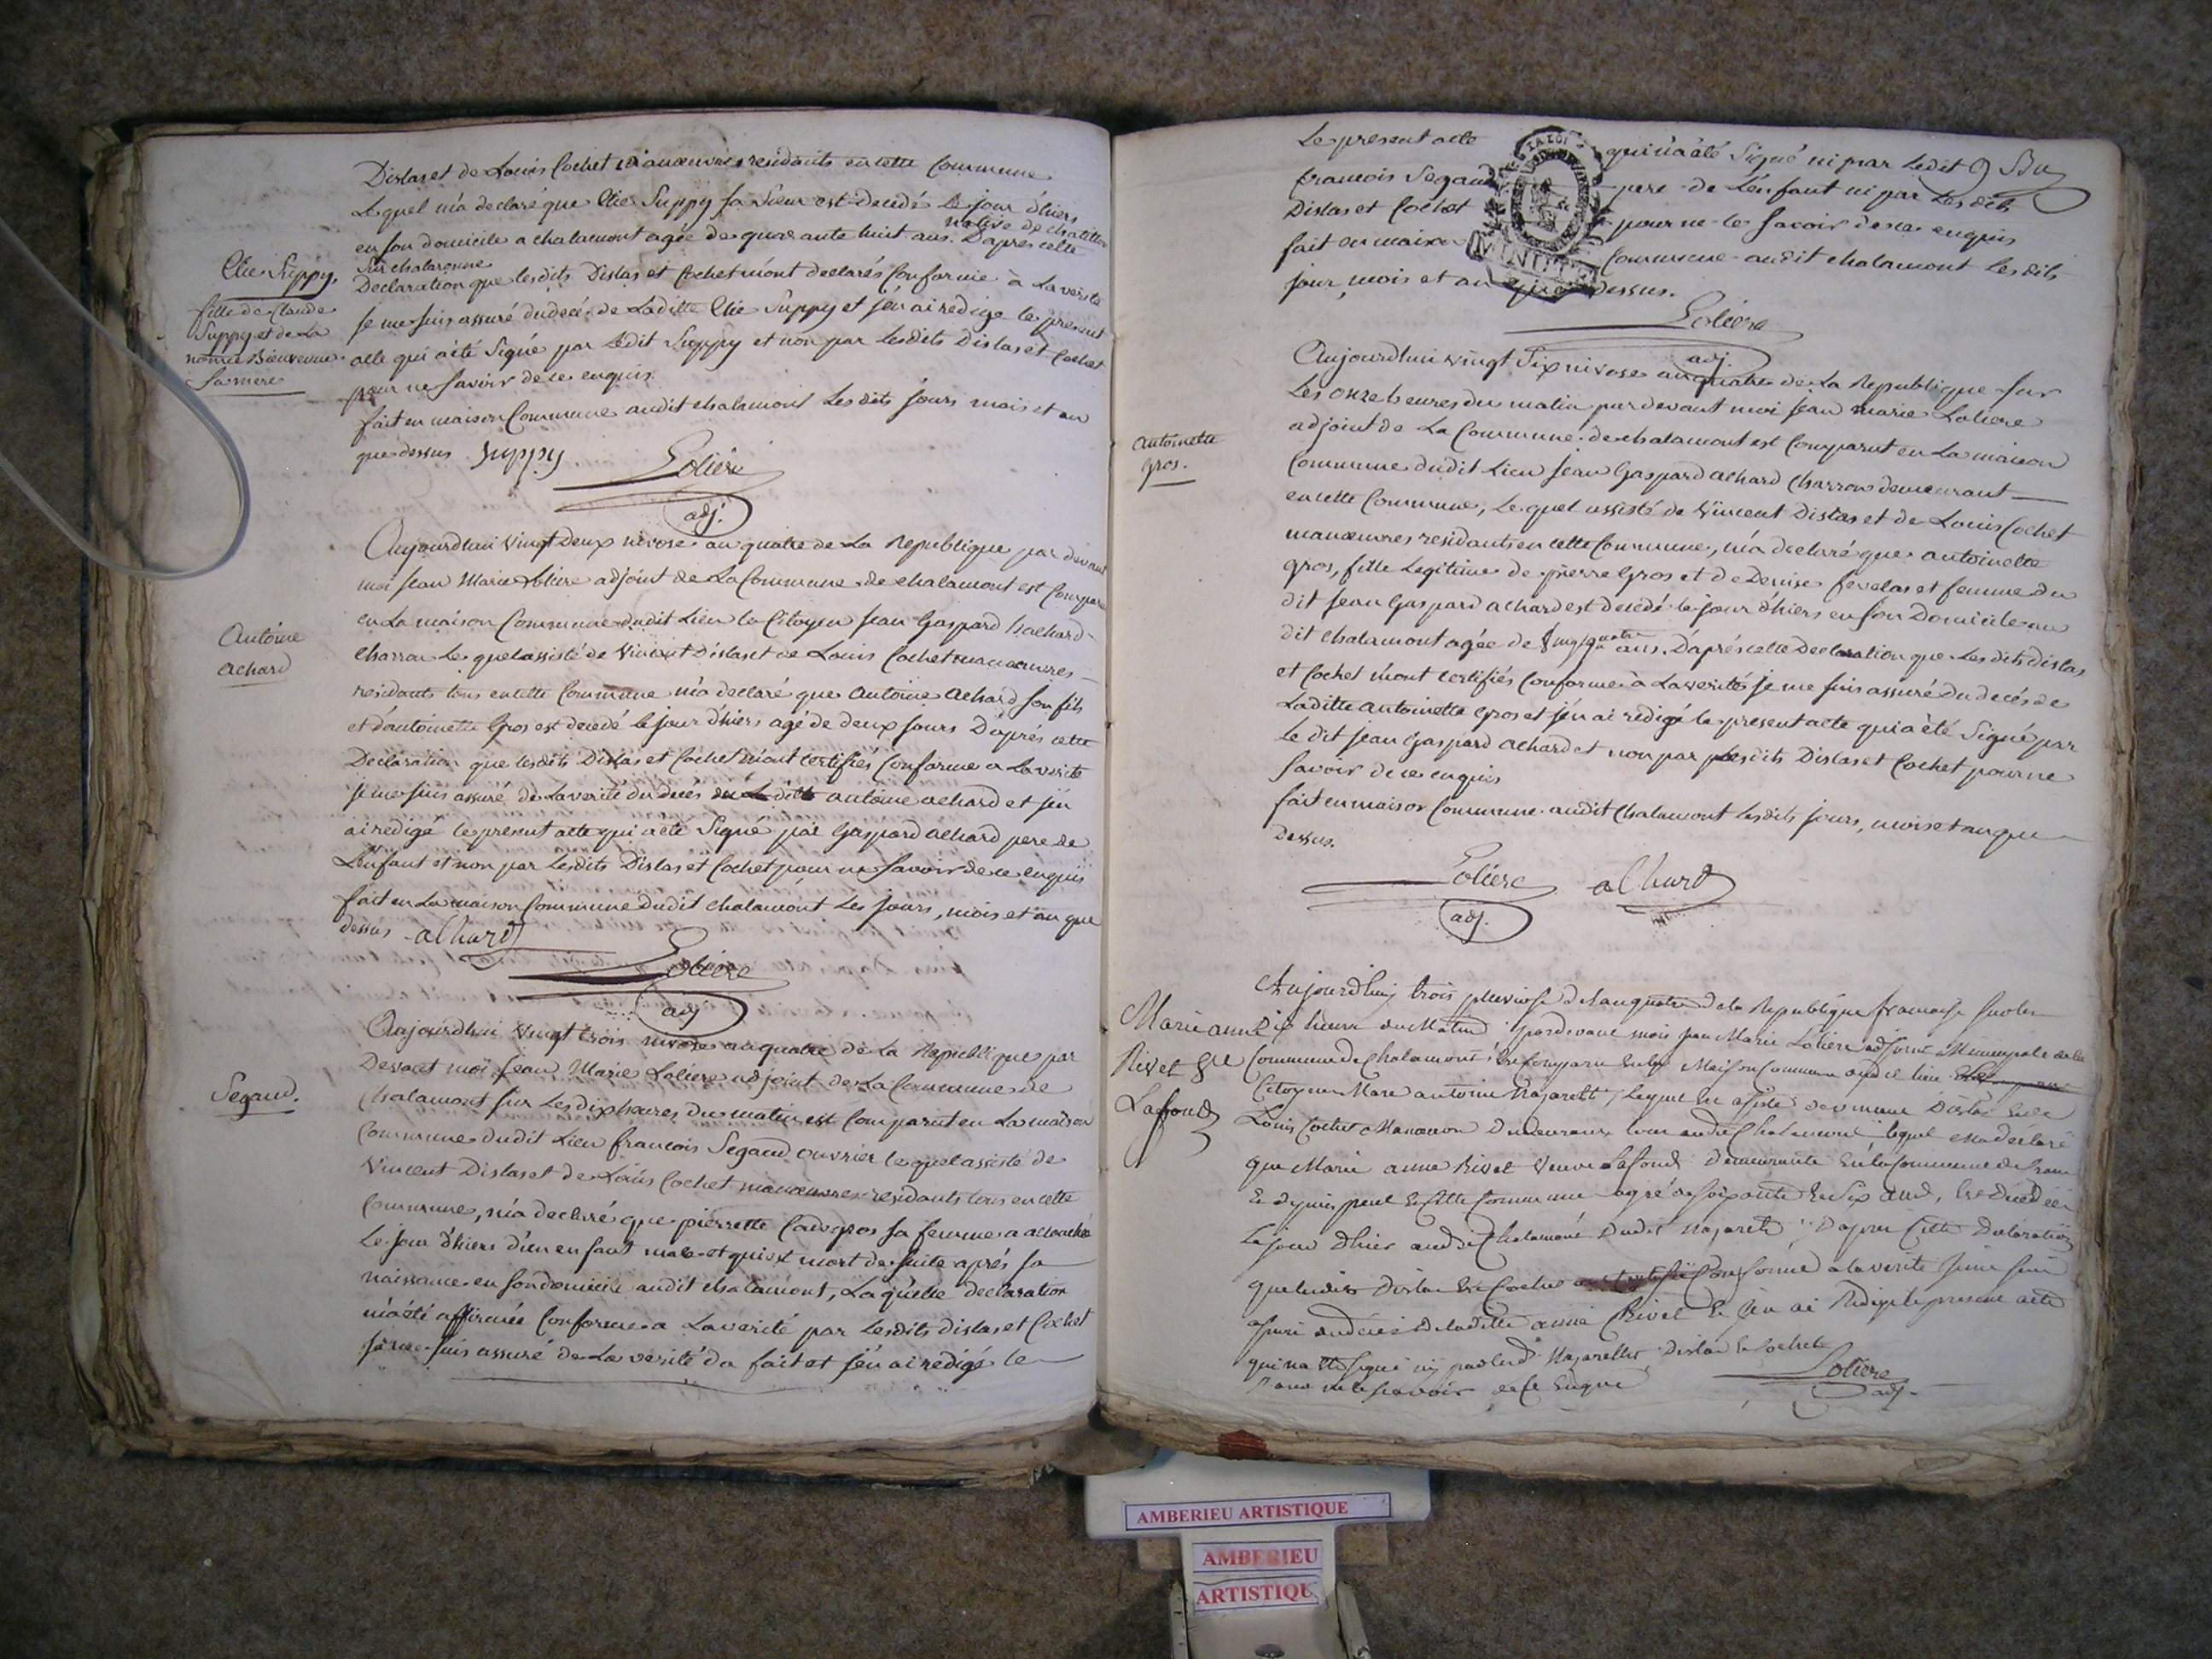 Dislas et de Louis Cochet manoeuvres residants en cette Commune
Lequel m'a declaré que Elie Suppy sa Sœur est decedé le jour d'hiers
native de chatillon
en son domicile a chalamont agée de quarante huit ans. D'après cette
sur chalaronne
Declaration que lesdits Dislas et Cochet m'ont declarés Conforme à La verité
Je me suis assuré du decé de Laditte Elie Suppy et j'en ai redigé le present
acte qui a été Signé par Ledit Suppy et non par Lesdits Dislas et Cochet
pour ne Savoir de ce enquis
fait en maison Commune audit chalamont Lesdits jours mois et an
que dessus Suppy
Loliere
adj.
Elie Suppy.
fille de Claude
Suppy et de La
nomée Bienvenue
Sa mere
Aujourdhui vingt Deux nivose an quatre de La Republique par devant
moi Jean Marie Loliere adjoint de La Commune de chalamont est Comparu
en La maison Commune dudit Lieu le Citoyen Jean Gaspard hachard
charron Lequel assisté de Vincent Dislas et de Louis Cochet manoeuvres
residants tous en cette Commune m'a declaré que Antoine Achard son fils
et d'antoinette Gros est decedé le jour d'hiers agé de deux jours D'après cette
Declaration que lesdits Dislas et Cochet m'ont certifiés Conforme a La verité
je me suis assuré de La verité du decés du Ledit antoine achard et j'en
ai redigé le present acte qui a été Signé par Gaspard achard pere de
L'enfant et non par Lesdits Dislas et Cochet pour ne Savoir de ce enquis
fait en La maison Commune dudit chalamont Les jours, mois et an que
dessus achard
Loliere
adj
Antoine
achard
Aujourdhui vingt trois nivose an quatre de La Republique par
Devant moi Jean Marie Loliere adjoint de La Commune de
Chalamont Sur Les dix heures du matin est Comparut en La maison
Commune dudit Lieu francois Segaud ouvrier lequel assisté de
Vincent Dislas et de Louis Cochet manoeuvres residants tous en cette
Commune, m'a declaré que pierrette sa femme a accouché
Le jour d'hiers d'un enfant male et qui est mort de suite aprés sa
naissance en son domicile audit chalamont, Laquelle declaration
m'a été affirmée Conforme a La verité par Lesdits dislas et Cochet
Je me suis assuré de La verité du fait et j'en ai redigé le
Segaud.
Le present acte qui n'a été Signé ni par Ledit
francois Segaud pere de L'enfant ni par Lesdits
Dislas et Cochet pour ne le Savoir de ce enquis
fait en maison Commune audit chalamont Lesdits
jour, mois et an que dessus.
LA LOI
MINUTE
Loliere
adj.
Aujourdhui vingt Six nivose an quatre de La Republique Sur
Les onze heures du matin par devant moi Jean Marie Loliere
adjoint de La Commune de chalamont est Comparut en La maison
Commune dudit Lieu Jean Gaspard achard Charron demeurant
en cette Commune, Lequel assisté de Vincent Dislas et de Louis Cochet
manoeuvres residants en cette Commune, m'a declaré que antoinette
gros, fille Legitime de pierre Gros et de Denise fevelas et femme du
dit Jean Gaspard achard est decedé le jour d'hiers en son Domicile au
dit chalamont agée de Vingt quatre ans. D'après cette Declaration que Lesdits dislas
et Cochet m'ont certifiés Conforme à La verité je me suis assuré du decés de
Laditte antoinette Gros et j'en ai redigé le present acte qui a été Signé par
le dit Jean Gaspard achard et non par Lesdits Dislas et Cochet pour ne
Savoir de ce enquis
fait en maison Commune audit Chalamont Lesdits jours, mois et an que
Dessus.
Loliere achard
adj.
Antoinette
gros.
Aujourdhuy trois pluviose de lan quatre de la Republique francaise sur les
dix heure du Matin pardevant mois jean Marie Loliere adjoint Municipale de la
Commune de Chalamont est Comparu en la Maison Commune audit lieu
Citoyen Marc antoine Najarelt, lequel assisté de vincent Dislas et de
Louis Cochet Manoeuvre Demeurants tous audit Chalamont, lequel ma déclaré
que Marie anne Rivet Veuve Lafond demeurante
et depuis peut en Cette Commune agé de soixante et Six ans, est décédée
Le jour dhier audit Chalamont D'apres Cette Déclaration
que lesdits Dislas et Cochet Conforme a la verité je me suis
assuré du décés de laditte anne Rivet et j'en ai Redigé le present acte
qui na été signé ny par ledt Najarelt Dislas et Cochet
pour ne le scavoir de Ce Enquis
Loliere
adj.
Marie anne
Rivet Ve
Lafond
AMBERIEU ARTISTIQUE
AMBERIEU
ARTISTIQU